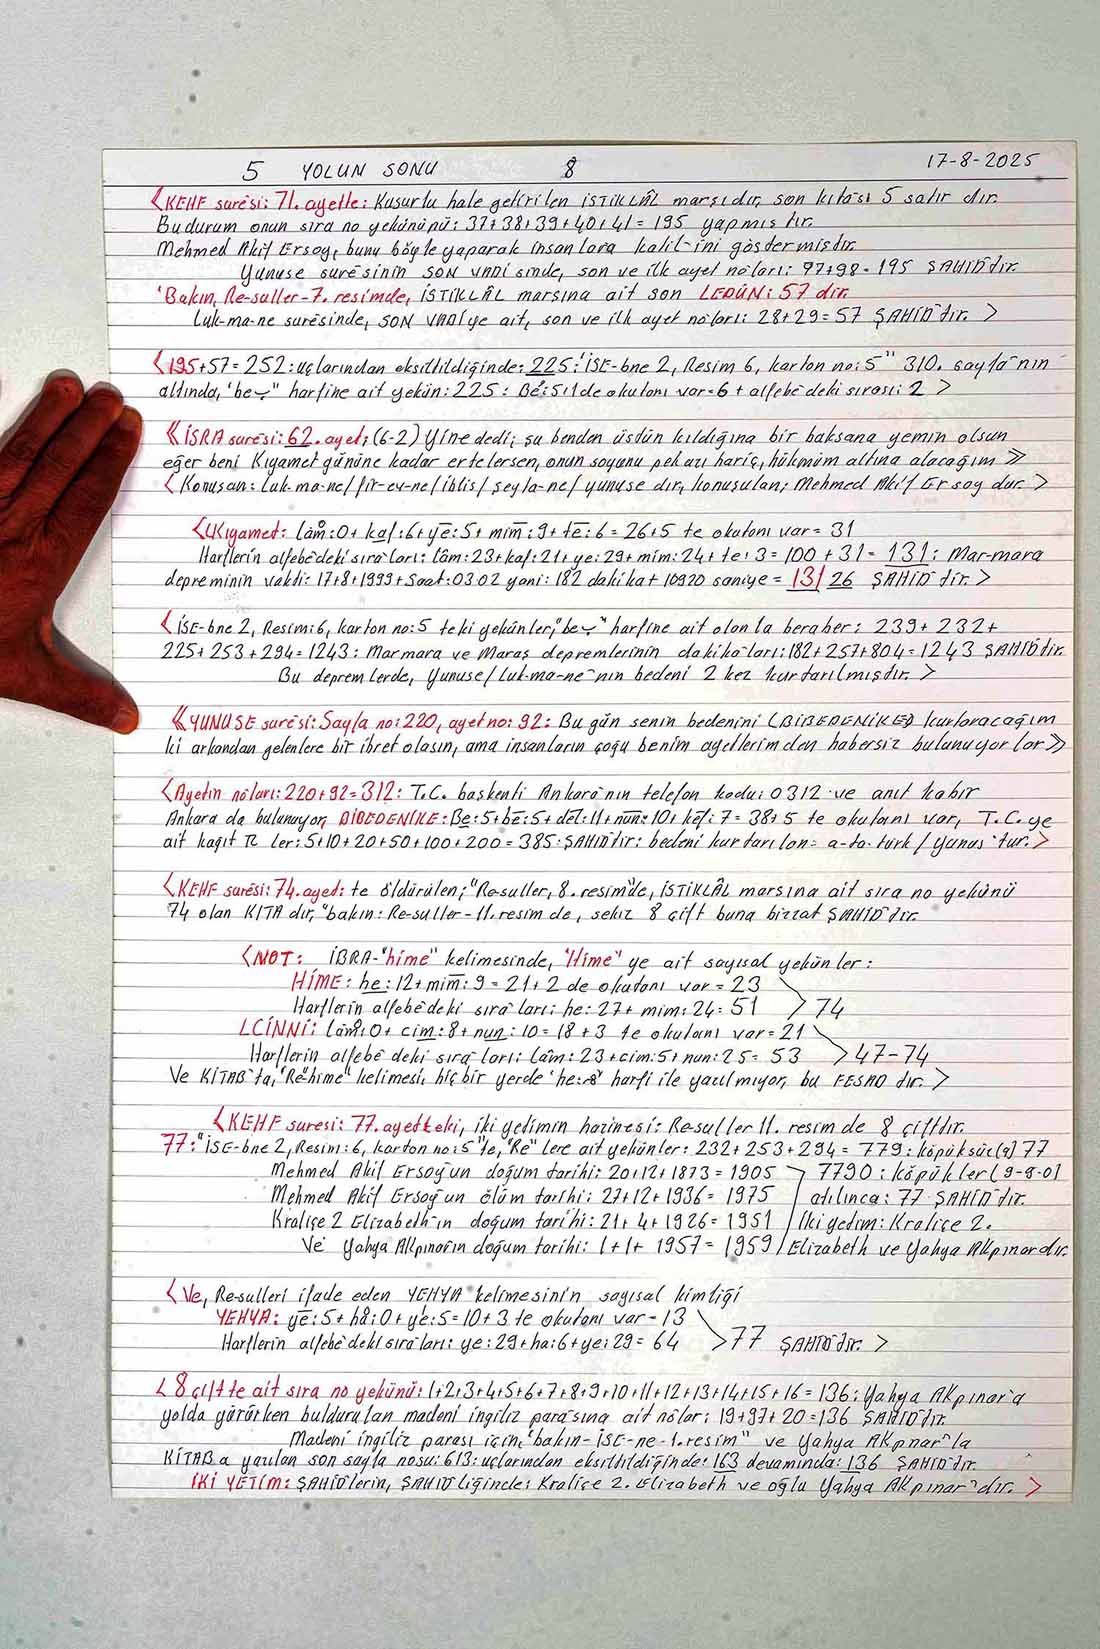 5 YOLUN SONU 8 17-8-2025
<KEHF suresi: 71. ayette: Kusurlu hale getirilen İSTİKLÂL marşıdır, son kıtası 5 satır dır.
Bu durum onun sıra no yekününü: 37+38+39+40+41=195 yapmıştır.
Mehmed Akif Ersoy, bunu böyle yaparak insanlara katil-ini göstermiştir.
Yunuse suresinin SON VADİ sinde, son ve ilk ayet noları: 97+98=195 ŞAHİD'dir.
"Bakın, Re-suller-7. resimde, İSTİKLÂL marsına ait son LEDÜN: 57 dir.
Luk-ma-ne suresinde, SON VADİ'ye ait, son ve ilk ayet noları: 28+29=57 ŞAHİD'dir. >
<195+57=252: uçlarından eksiltildiğinde: 225: "İSE-bne 2, Resim 6, karton no: 5" 310. sayfa'nın
altında, "be ب" harfine ait yekün: 225: Be: 5+1 de okutanı var=6 + alfebe'deki sırası: 2 >
<<İSRA suresi: 62. ayet; (6-2) Yine dedi; şu benden üstün kıldığına bir baksana yemin olsun
eğer beni Kıyamet gününe kadar ertelersen, onun soyunu pek azı hariç, hükmüm altına alacağım >>
<Konuşan: Luk-ma-ne/fir-ev-ne/iblis/şeyta-ne/yunuse dır, konuşulan; Mehmed Akif Ersoy dur. >
<LKıyamet: lâm: 0+kaf: 6+ye: 5+mim: 9+te: 6=26+5 te okutanı var=31
Harflerin alfebe'deki sıra'ları: lâm: 23+kaf: 21+ye: 29+mim: 24+te: 3=100+31=131: Mar-mara
depreminin vakti: 17+8+1999+Saat: 03.02 yani: 182 dakika+10920 saniye=131 26 ŞAHİD'dir. >
<İSE-bne 2, Resim: 6, karton no: 5 teki yekünler, "be ب" harfine ait olanla beraber: 239+232+
225+253+294=1243: Marmara ve Maraş depremlerinin dakika'ları: 182+257+804=1243 ŞAHİD'dir.
Bu depremlerde, Yunuse/Luk-ma-ne'nin bedeni 2 kez kurtarılmıştır. >
<<YUNUSE suresi: Sayfa no: 220, ayet no: 92: Bu gün senin bedenini (BİBEDENİKE) kurtaracağım
ki arkandan gelenlere bir ibret olasın, ama insanların çoğu benim ayetlerimden habersiz bulunuyorlar>>
<Ayetin noları: 220+92=312: T.C. başkenti Ankara'nın telefon kodu: 0312 ve anıt kabir
Ankara da bulunuyor, BİBEDENİKE: Be: 5+be: 5+del: 11+nun: 10+kef: 7=38+5 te okutanı var, T.C. ye
ait kağıt TL ler: 5+10+20+50+100+200=385 ŞAHİD'dir: bedeni kurtarılan= a-ta-türk/Yunus'tur. >
<KEHF suresi: 74. ayet: te öldürülen; "Re-suller, 8. resim'de, İSTİKLÂL marsına ait sıra no yekünü
74 olan KITA dır, "bakın: Re-suller-11. resim de, sekiz 8 çift buna bizzat ŞAHİD'dir.
<NOT: İBRA-"hime" kelimesinde, "Hime" ye ait sayısal yekünler:
HİME: he: 12+mim: 9=21+2 de okutanı var=23
Harflerin alfebe'deki sıra'ları: he: 27+mim: 24=51 >74
LCİNNİ: lâm: 0+cim: 8+nun: 10=18+3 te okutanı var=21
Harflerin alfebe'deki sıra'ları: lâm: 23+cim: 5+nun: 25=53 >47-74
Ve KİTAB'ta, "Re-hime" kelimesi, hiç bir yerde "he: ه" harfi ile yazılmıyor, bu FESAD dır. >
<KEHF suresi: 77. ayetteki, iki yetimin hazinesi: Re-suller 11. resim de 8 çiftdir.
77: "İSE-bne 2, Resim: 6, karton no: 5"te, "Re" lere ait yekünler: 232+253+294=779: köpüksüz(9) 77
Mehmed Akif Ersoy'un doğum tarihi: 20+12+1873=1905 7790: köpükler (9-9-0)
Mehmed Akif Ersoy'un ölüm tarihi: 27+12+1936=1975 atılınca: 77 ŞAHİD'dir.
Kraliçe 2 Elizabeth'in doğum tarihi: 21+4+1926=1951 İki yetim: Kraliçe 2.
Ve Yahya Akpınar'ın doğum tarihi: 1+1+1957=1959 Elizabeth ve Yahya Akpınar dır.
<Ve, Re-sulleri ifade eden YEHYA kelimesinin sayısal kimliği
YEHYA: ye: 5+ha: 0+ye: 5=10+3 te okutanı var=13
Harflerin alfebe'deki sıra'ları: ye: 29+ha: 6+ye: 29=64 >77 ŞAHİD'dir. >
<8 çift'te ait sıra no yekünü: 1+2+3+4+5+6+7+8+9+10+11+12+13+14+15+16=136: Yahya Akpınar'a
yolda yürürken buldurulan madeni ingiliz parasına ait nolar: 19+97+20=136 ŞAHİD'dir.
Madeni ingiliz parası için, "bakın-İSE-ne-1. resim" ve Yahya Akpnar'la
KİTAB a yazılan son sayfa nosu: 613: uçlarından eksiltildiğinde: 163 devamında: 136 ŞAHİD'dir.
İKİ YETİM: ŞAHİD'lerin, ŞAHİD'liğinde: Kraliçe 2. Elizabeth ve oğlu Yahya Akpınar'dır. >